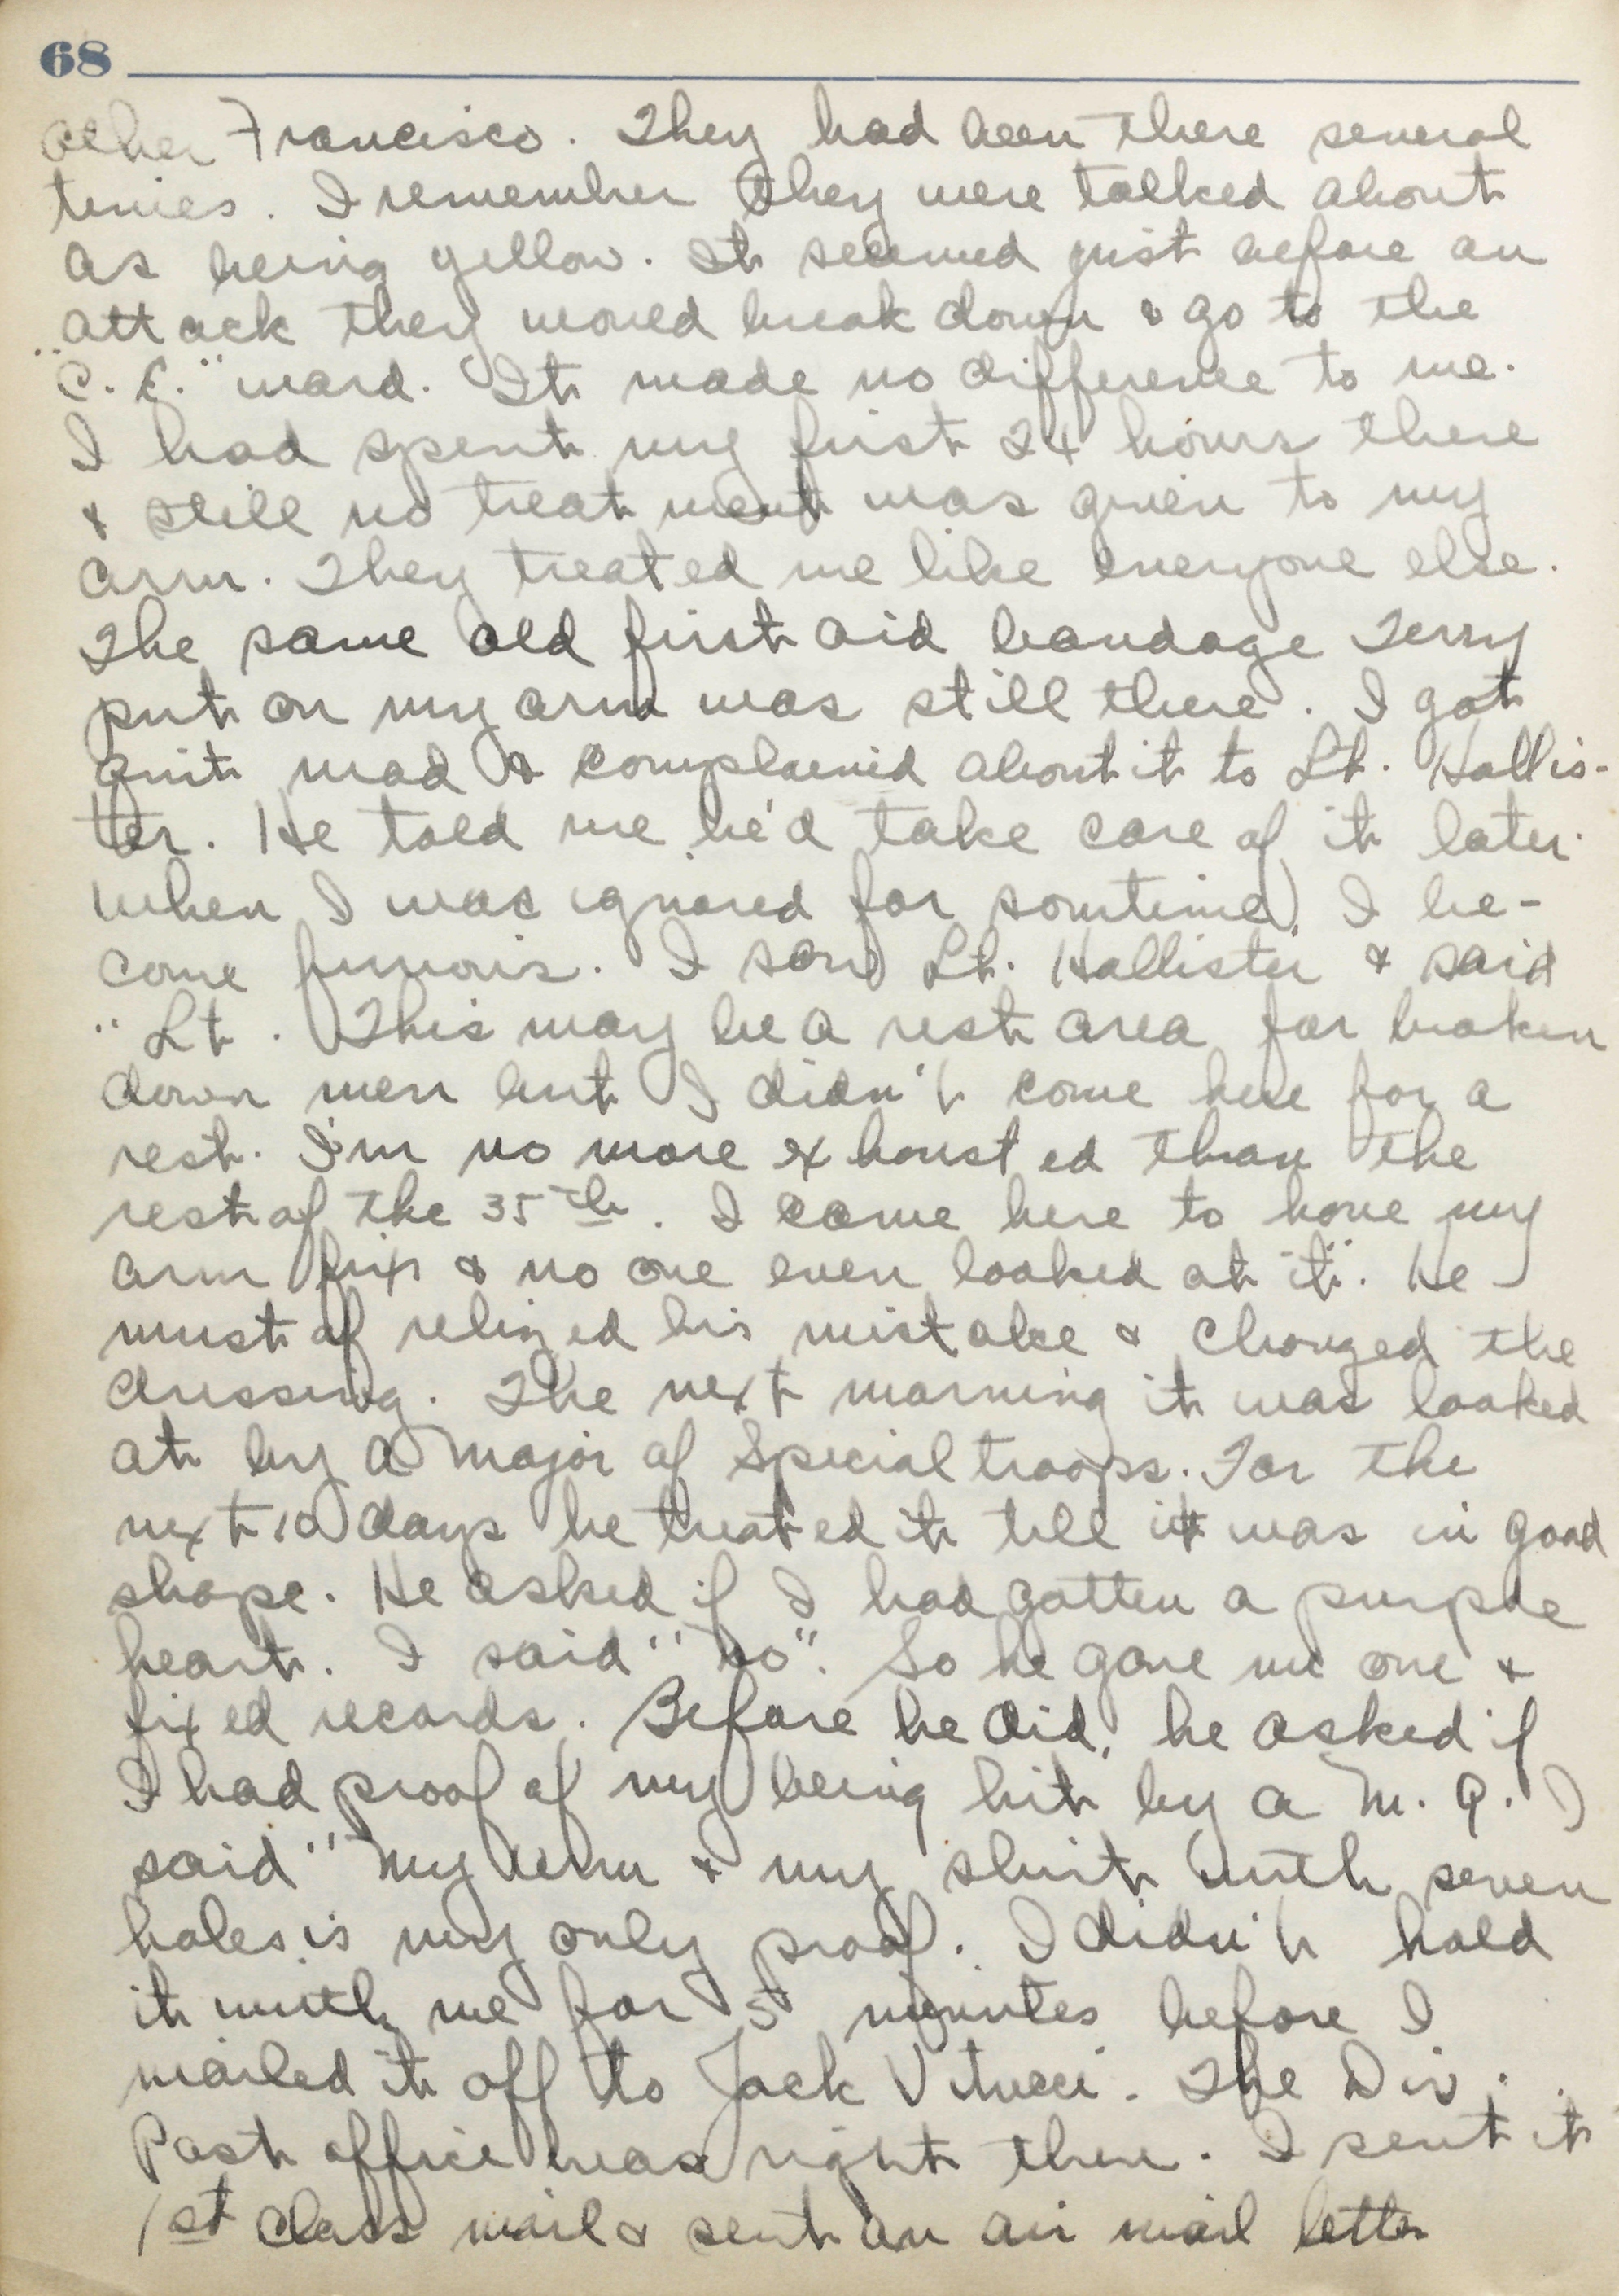 68
other Francisco. They had been there several
times. I remember they were talked about
as being yellow. It seemed just before an
attack they would break down & go to the
"C. E." ward. It made no difference to me.
I had spent my first 24 hours there
& still no treatment was given to my
arm. They treated me like everyone else.
The same old first aid bandage Terry
put on my arm was still there. I got
quit mad & complained about it to Lt. Hollis-
ter. He told me he'd take care of it later.
when I was ignored for sometime, I be-
come furious. I saw Lt. Hollister & said
"Lt. This may be a rest area for broken
down men but I didn't come here for a
rest. I'm no more exhousted than the
rest of the 35th. I came here to have my
arm fix & no one even looked at it". He
must of relized his mistake & changed the
dressing. The next morning it was looked
at by a Major of Special troops. For the
next 10 days he treated it till it was in good
shape. He asked if I had gotten a purple
heart. I said "no". So he gave me one &
fixed records. Before he did, he asked if
I had proof of my being hit by a M. G. I
said "My arm & my shirt with seven
holes is my only proof. I didn't hold
it with me for 5 minutes before I
mailed it off to Jack Vitucci. The Div.
Post office was right there. I sent it
1st class mail & sent an air mail letter